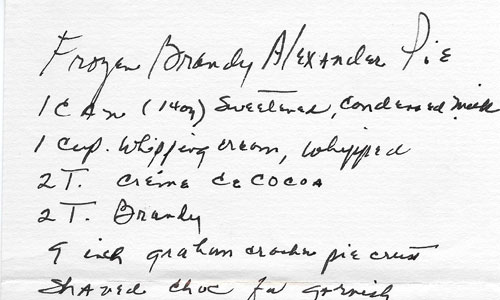 Frozen Brandy Alexander Pie
1 can (14oz) sweetened, condensed milk
1 cup. whipping cream, whipped
2 T. créme de cocoa
2 T. Brandy
9 inch graham cracker pie crust
shaved choc for garnish